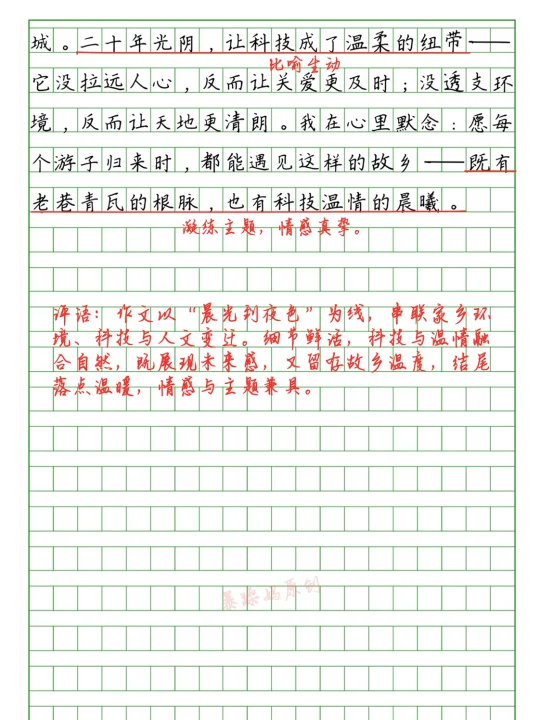 城。二十年光阴，让科技成了温柔的纽带——
比喻生动
它没拉远人心，反而让关爱更及时；没透支环
境，反而让天地更清朗。我在心里默念：愿每
个游子归来时，都能遇见这样的故乡——既有
老巷青瓦的根脉，也有科技温情的晨曦。
凝练主题，情感真挚。
评语：作文以“晨光到夜色”为线，串联家乡环
境、科技与人文变迁。细节鲜活，科技与温情融
合自然，既展现未来感，又留存故乡温度，结尾
落点温暖，情感与主题兼具。
暴躁妈原创